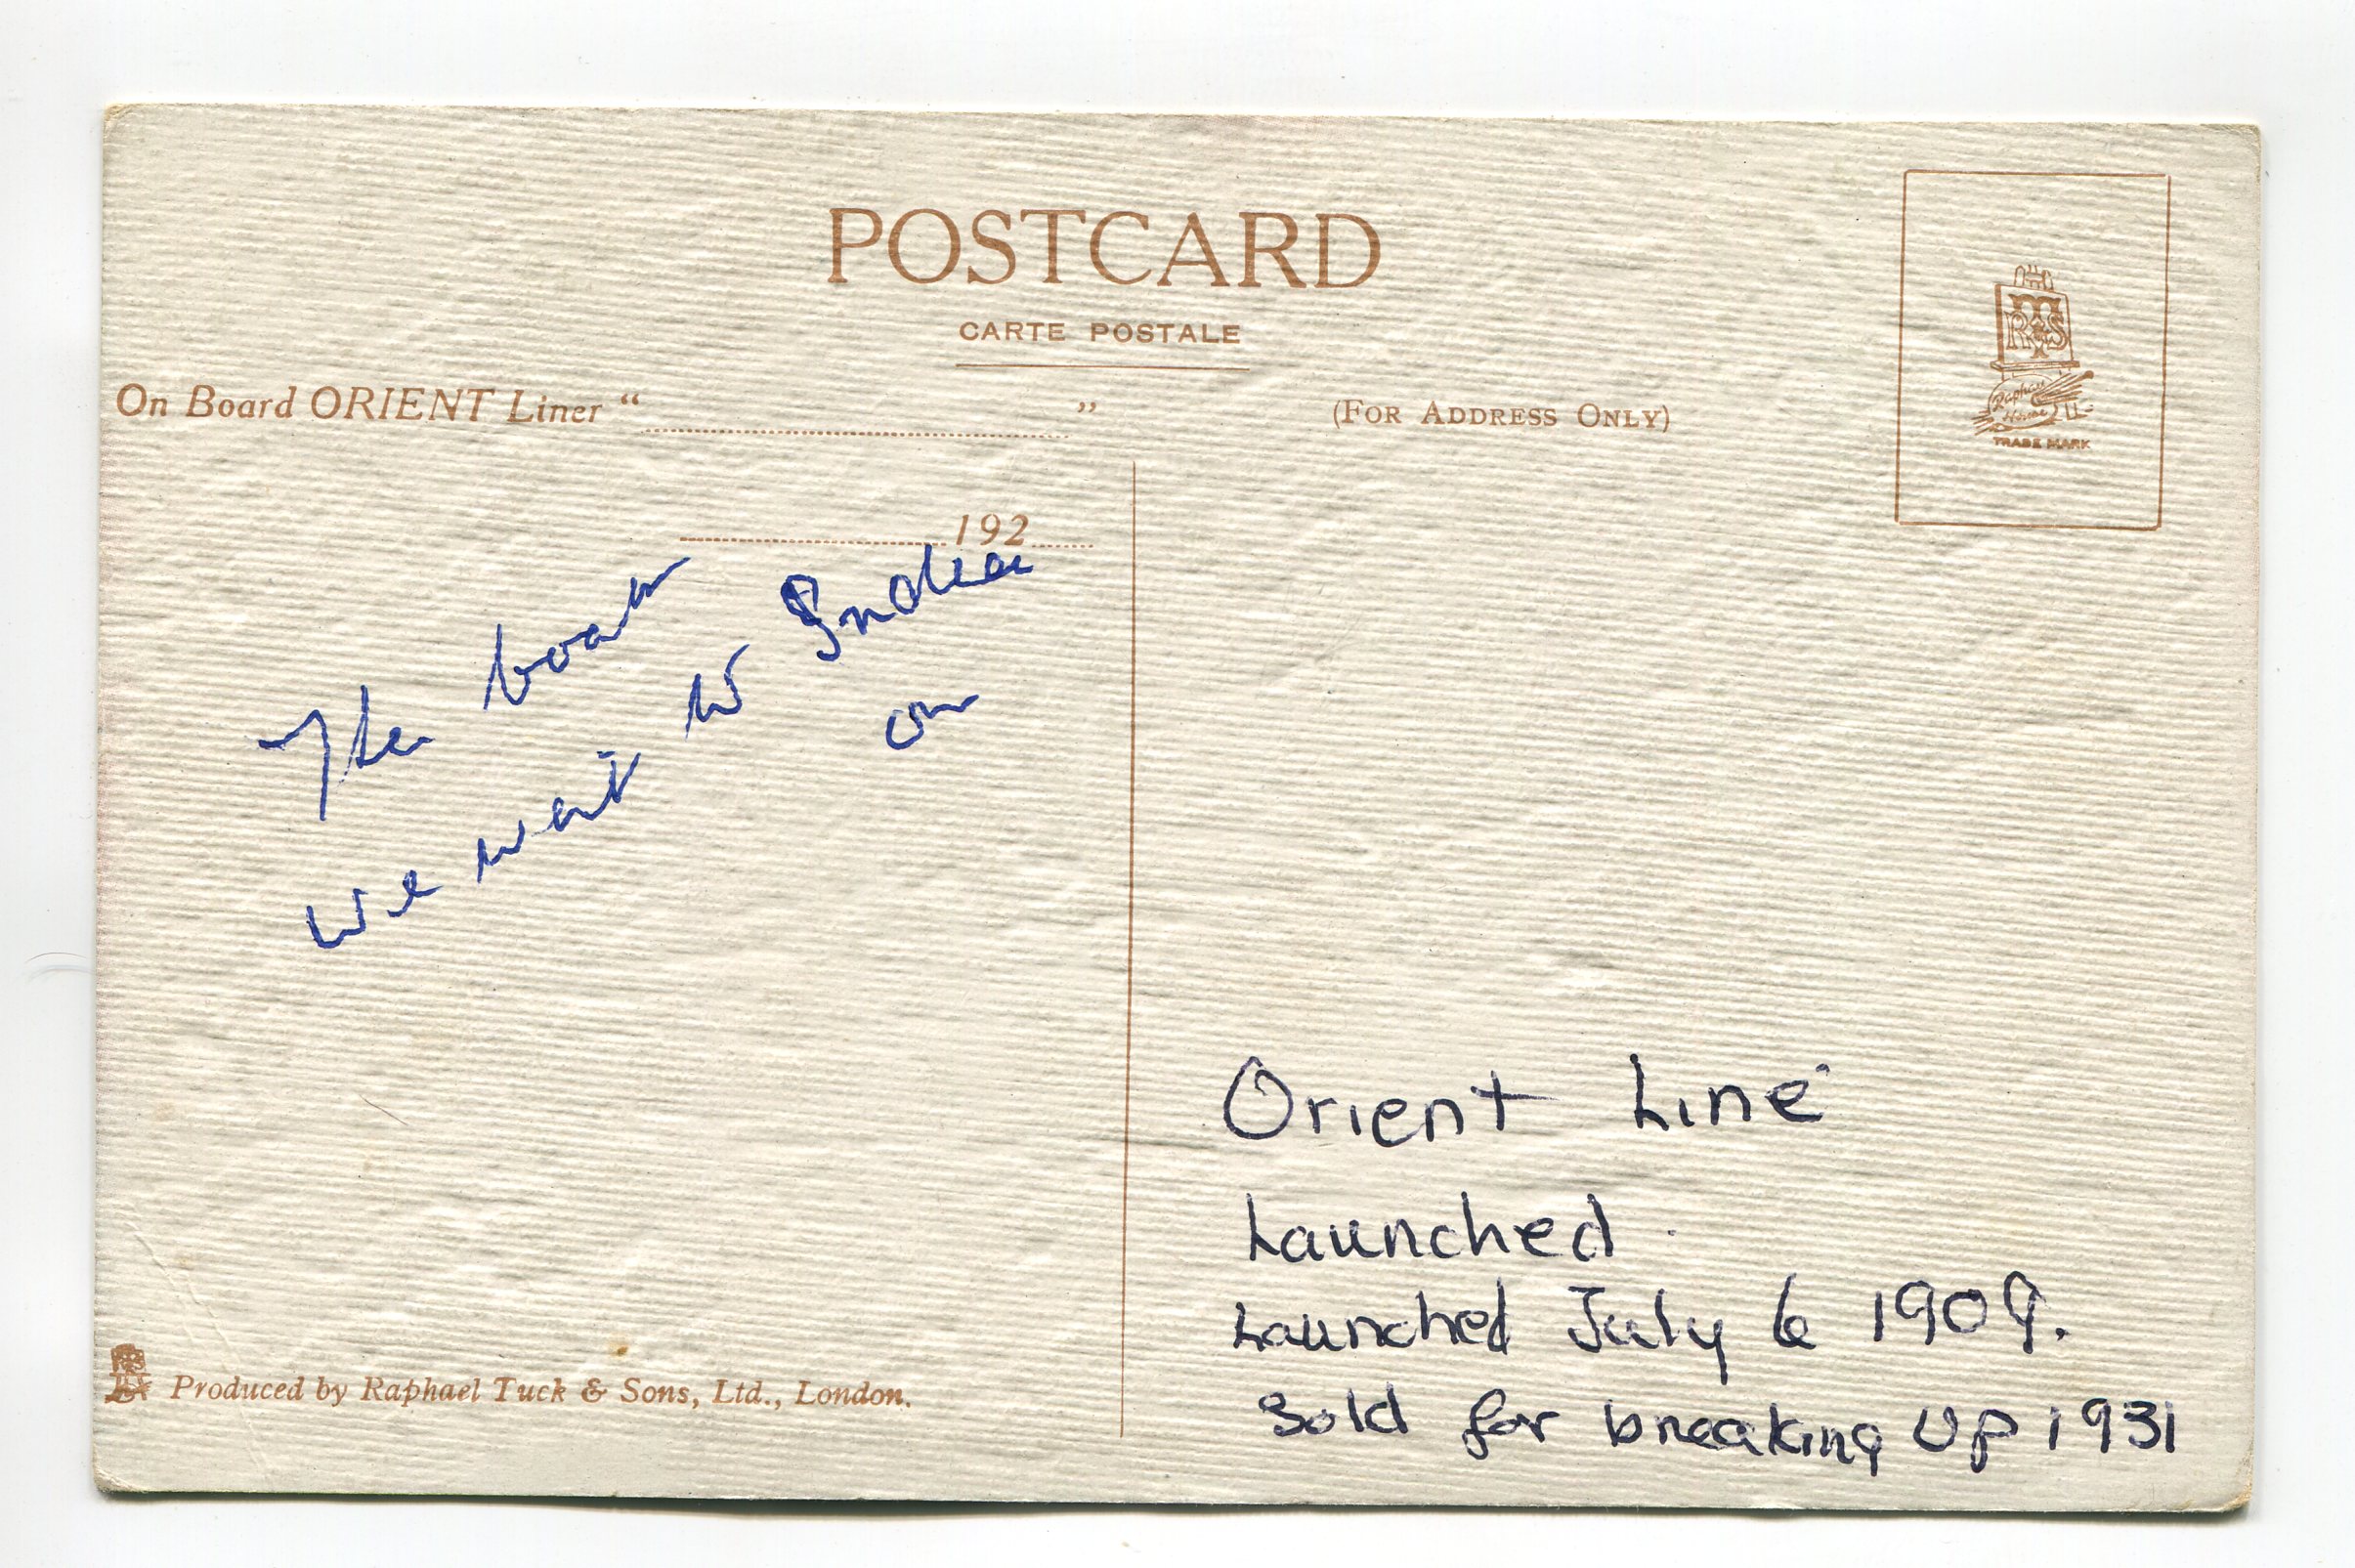 POSTCARD
CARTE POSTALE
On Board ORIENT Liner “ ”
(FOR ADDRESS ONLY)
192
The boat
we went to India
on
Orient Line
Launched
Launched July 6 1909.
Sold for breaking up 1931
Produced by Raphael Tuck & Sons, Ltd., London.
RTS
Raphael
House
TRADE MARK